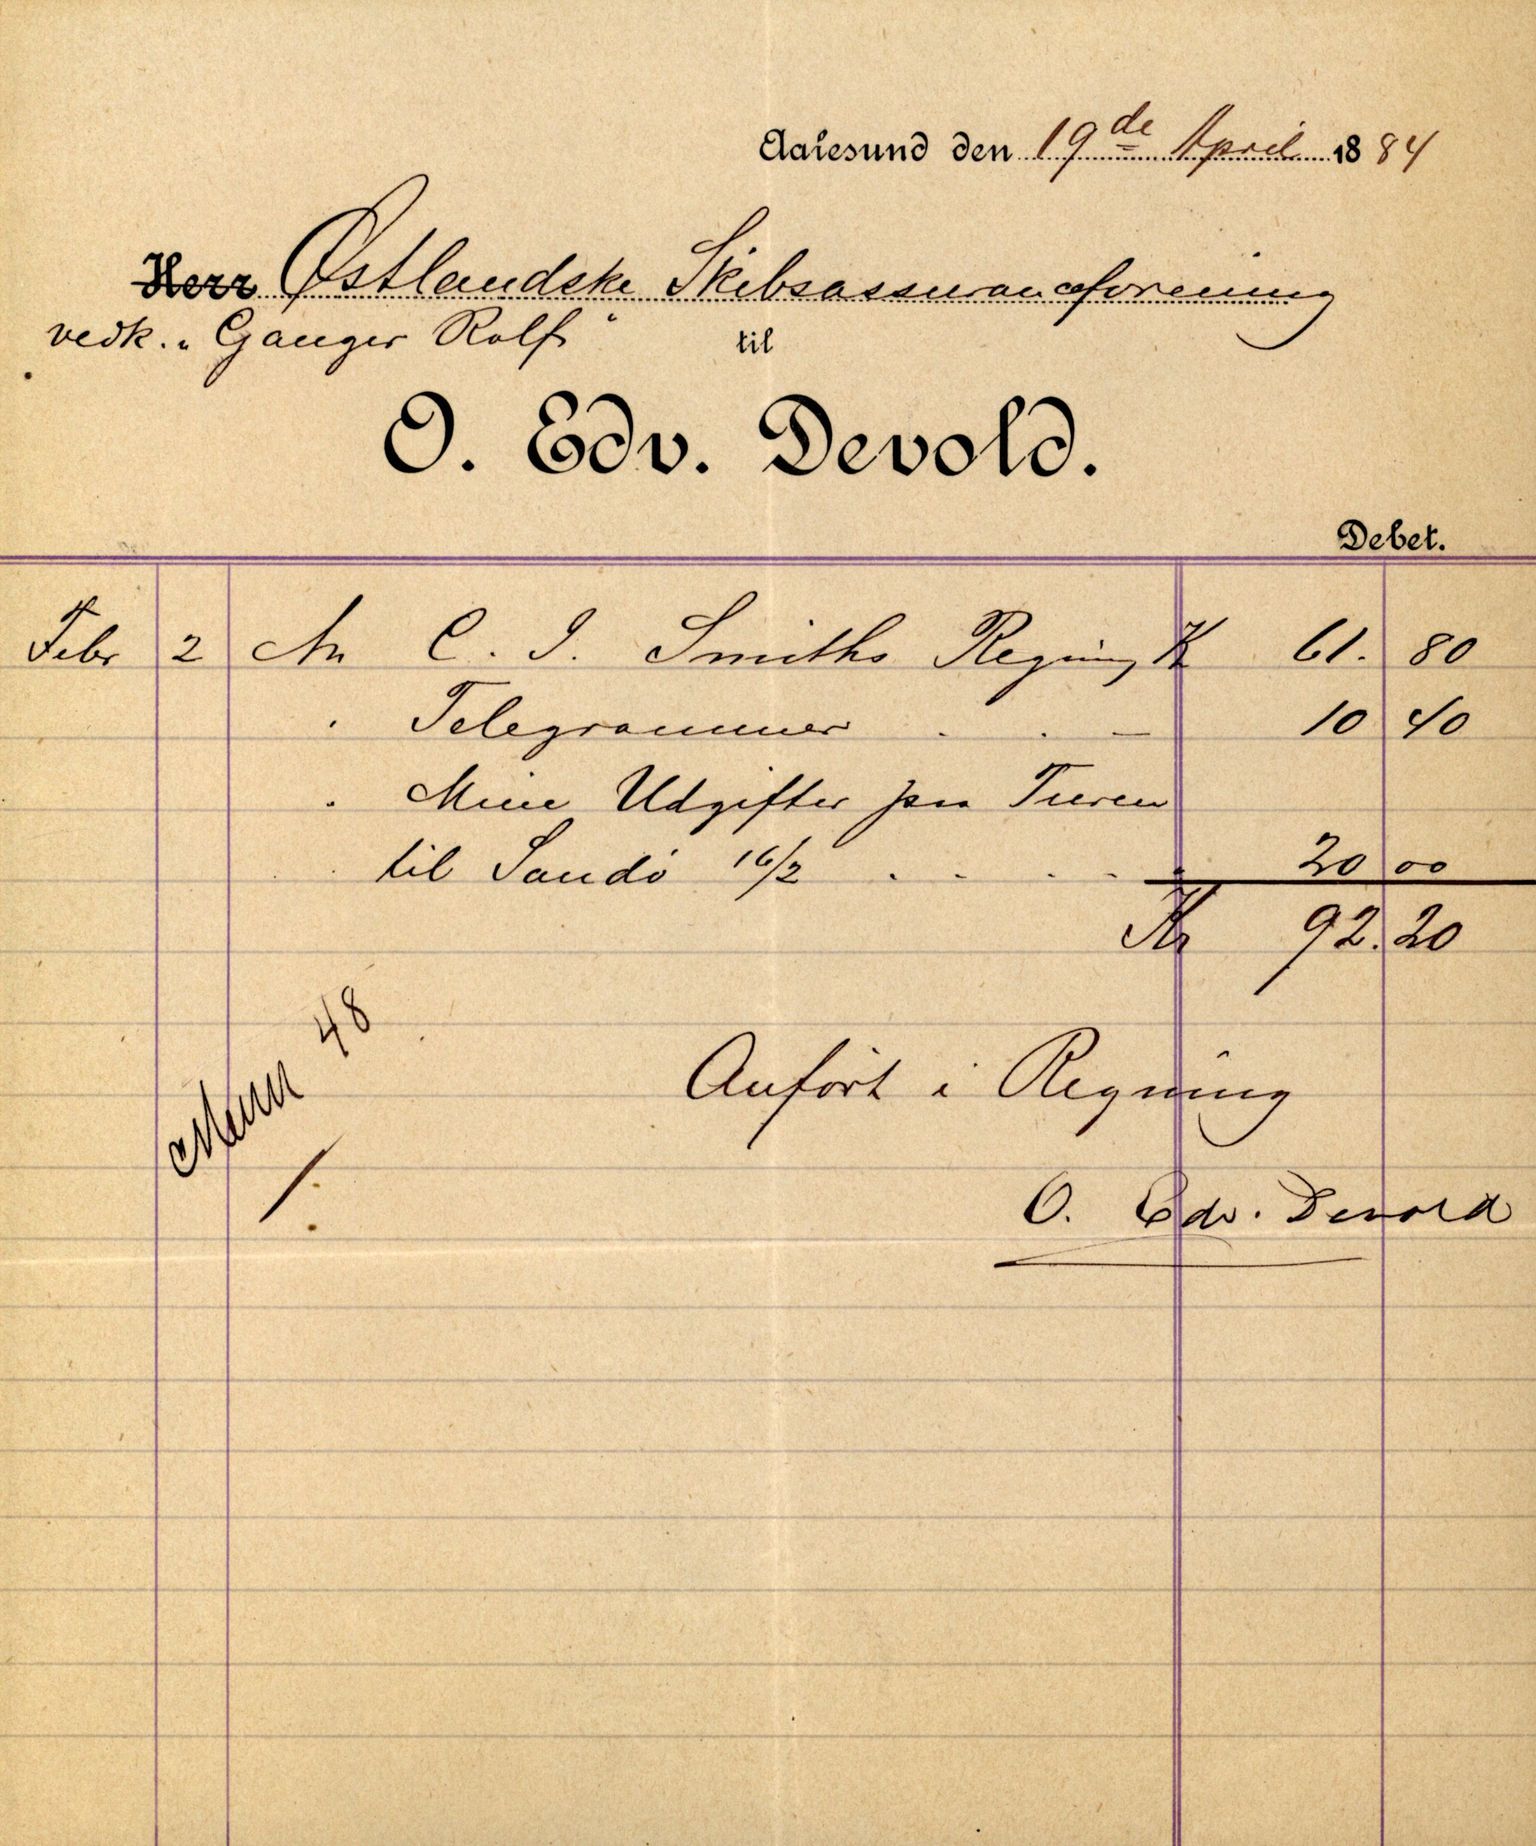 Aalesund den 19de April 1884
Herr Østlandske Skibsassuranceforening
vedk. "Ganger Rolf"
til
O. Edv. Devold.
Debet.
Febr 2 An C. I. Smiths Regning Kr 61. 80
" Telegrammer . . — 10 40
" Mine Udgifter paa Turen
til Sandö 16/2 . . . . 20 00
Kr 92. 20
48
Anført i Regning
O. Edv. Devold